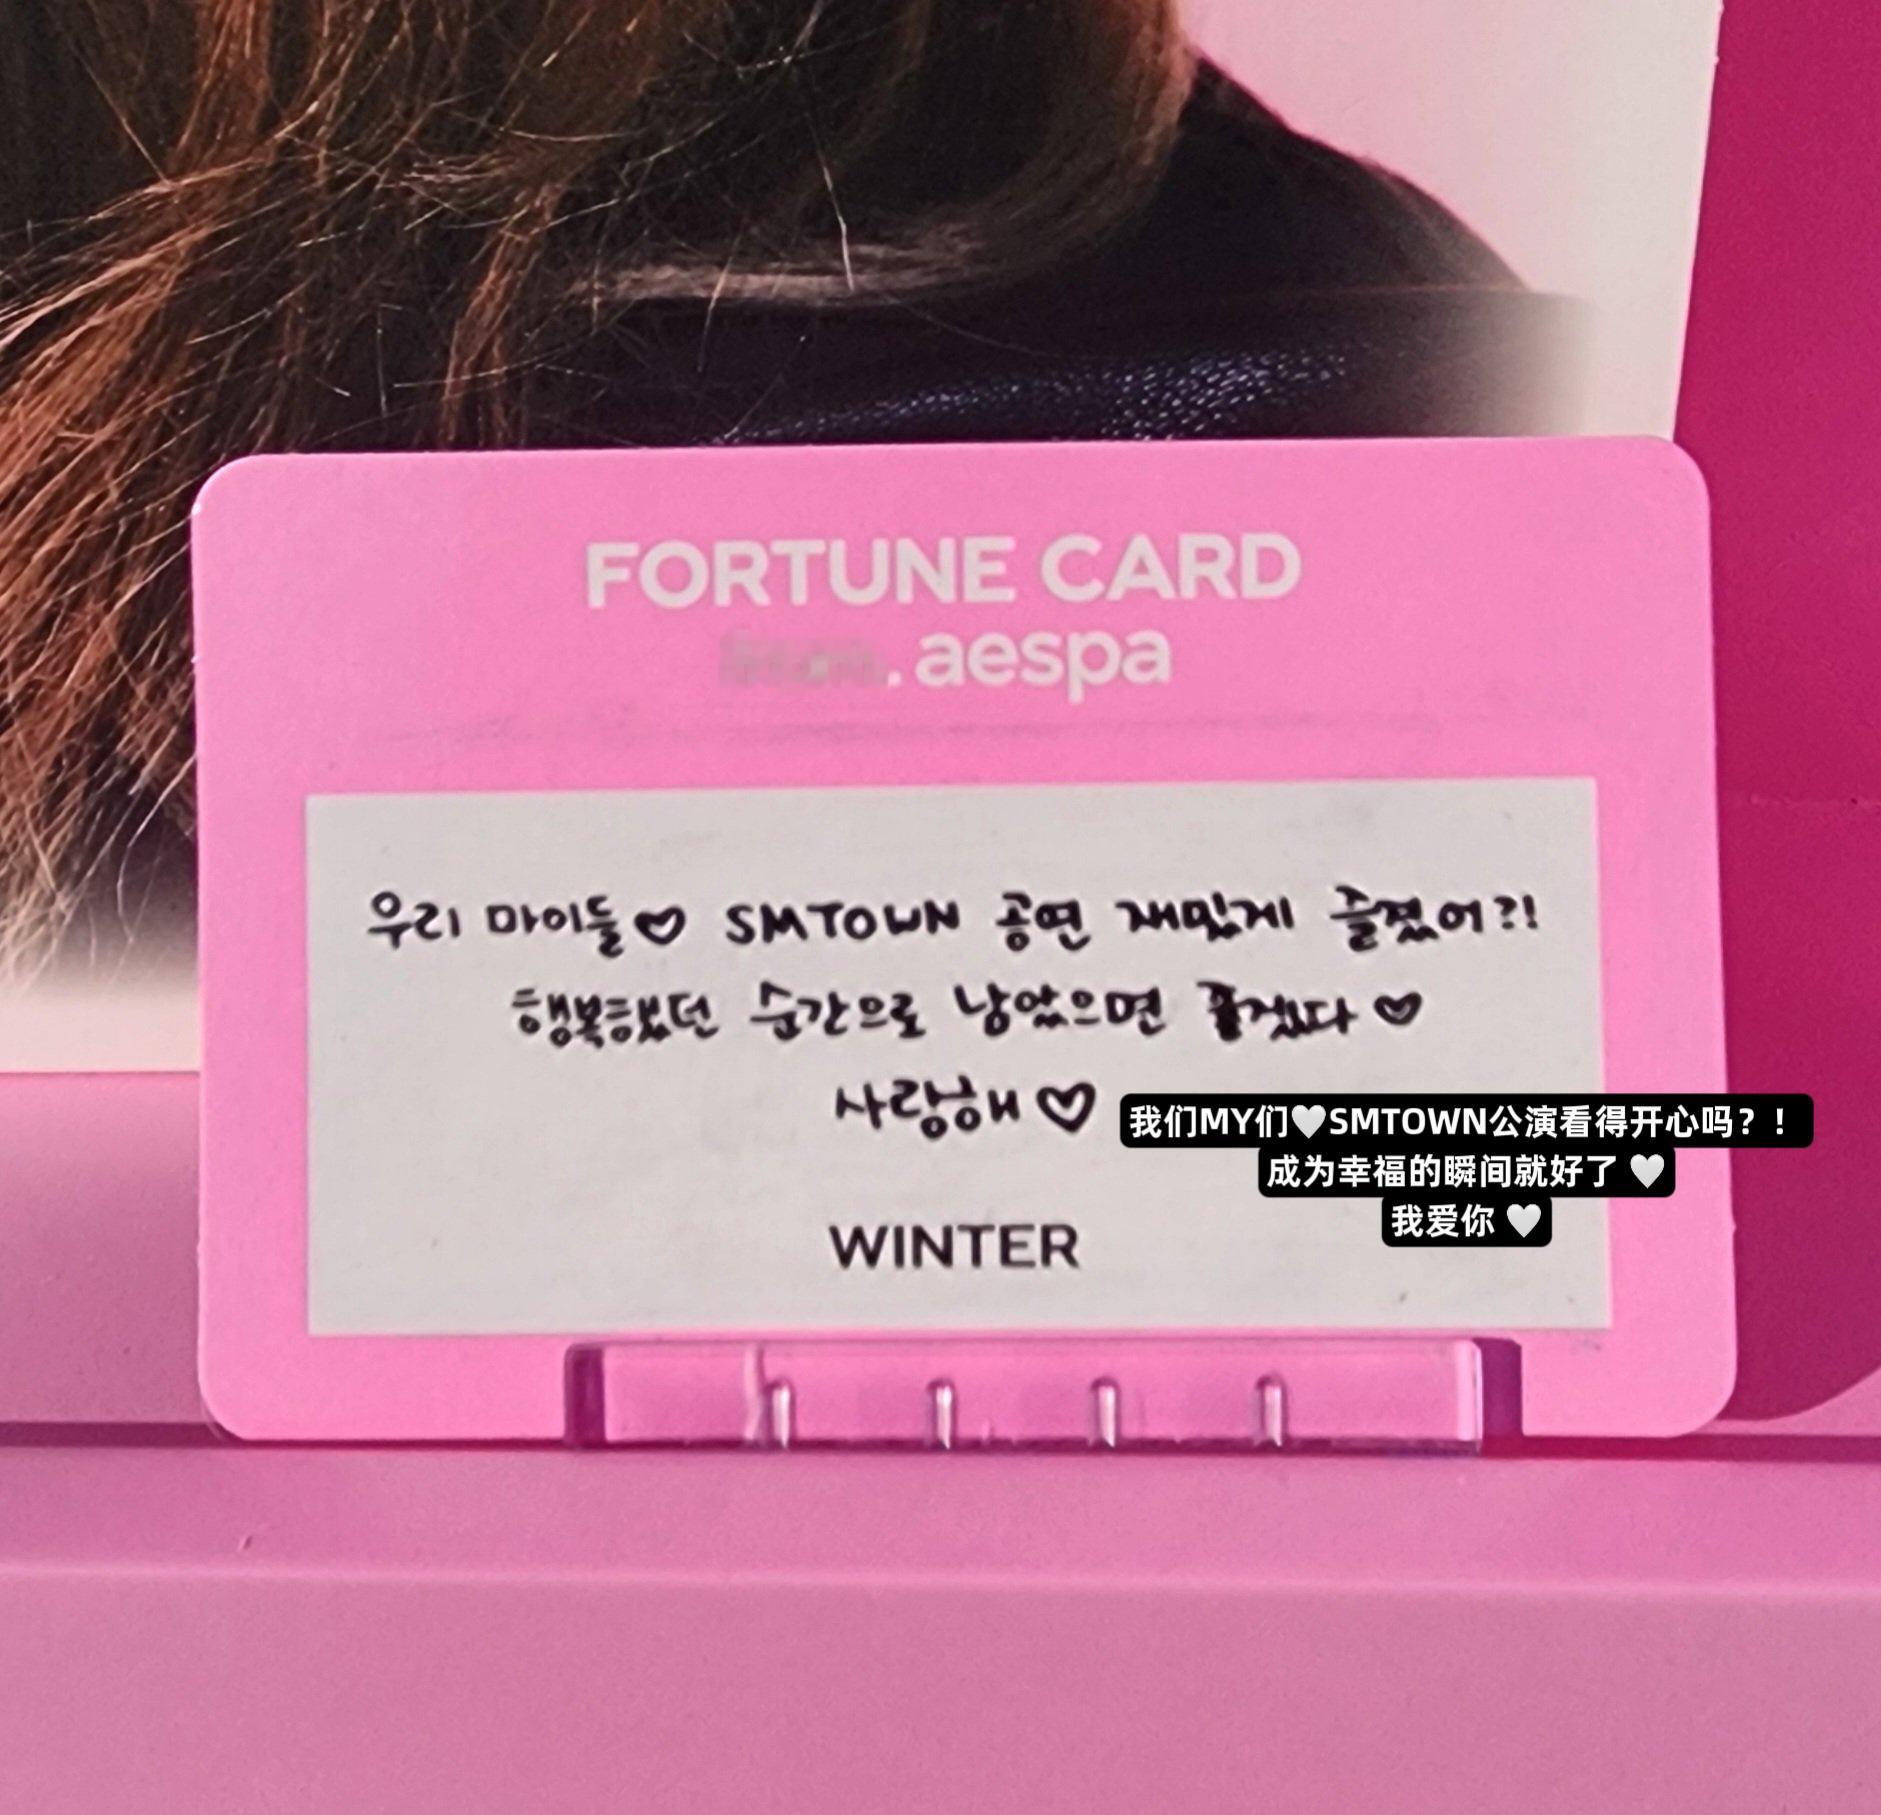 FORTUNE CARD
. aespa
우리 마이들♡ SMTOWN 공연 재밌게 즐겼어?!
행복했던 순간으로 남았으면 좋겠다♡
사랑해♡
WINTER
我们MY们🤍SMTOWN公演看得开心吗？！
成为幸福的瞬间就好了 🤍
我爱你 🤍